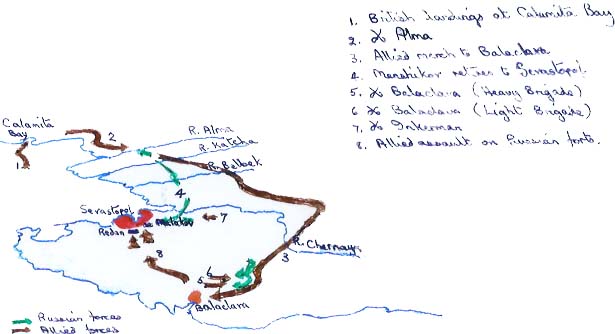 1. British landings at Calamita Bay
2. X Alma
3. Allied march to Balaclava
4. Menshikov retires to Sevastopol
5 X Balaclava (Heavy Brigade)
6 X Balaclava (Light Brigade)
7, X Inkerman
8. Allied assault on Russian forts.
Calamita
Bay
1
2
R. Alma
R. Katcha
R. Belbek
4
Sevastopol
Malakov
Redan
7
R. Chernaya
3
8
6
5
Balaclava
Russian forces
Allied forces